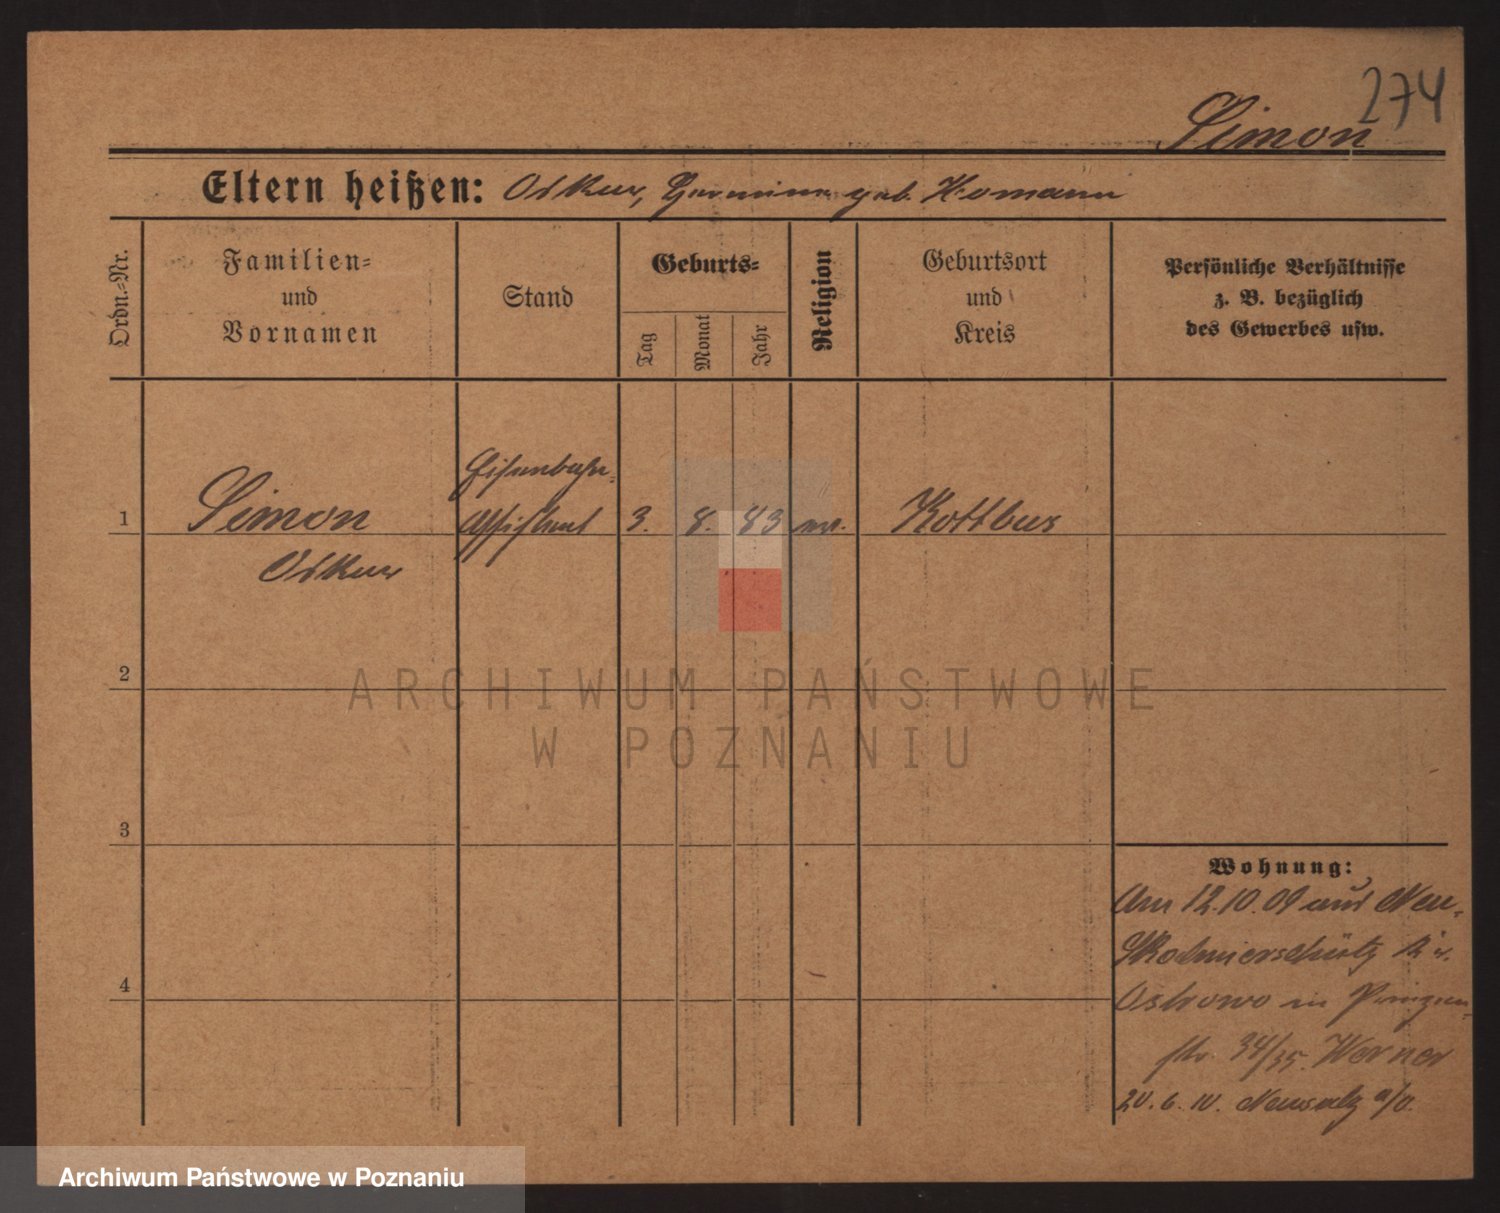 274
Simon
Eltern heißen: Oskar, Hermine geb. Homann
Ordn.-Nr.
Familien-
und
Vornamen
Stand
Geburts-
Tag
Monat
Jahr
Religion
Geburtsort
und
Kreis
Persönliche Verhältnisse
z. B. bezüglich
des Gewerbes usw.
1
Simon
Oskar
Eisenbahn-
Assistent
3.
8.
83
ev.
Kottbus
2
3
4
Wohnung:
Am 12.10.09 aus Neu-
Skalmierschütz Kr.
Ostrowo in Prinzen-
str. 34/35. Werner
20.6.10. Neusalz a/O.
ARCHIWUM PAŃSTWOWE
W POZNANIU
Archiwum Państwowe w Poznaniu